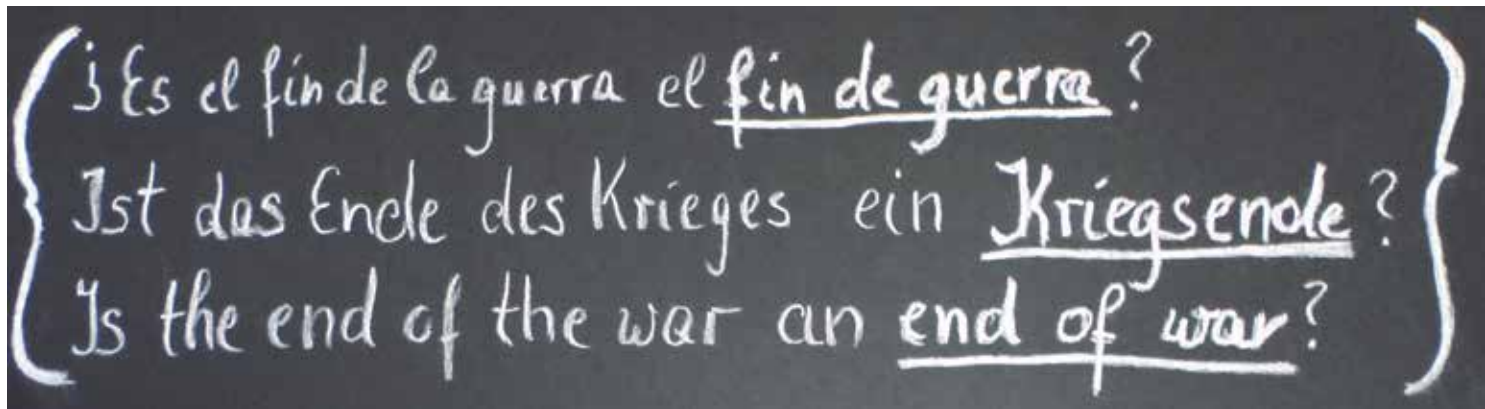 ¿Es el fin de la guerra el fin de guerra?
Ist das Ende des Krieges ein Kriegsende?
Is the end of the war an end of war?